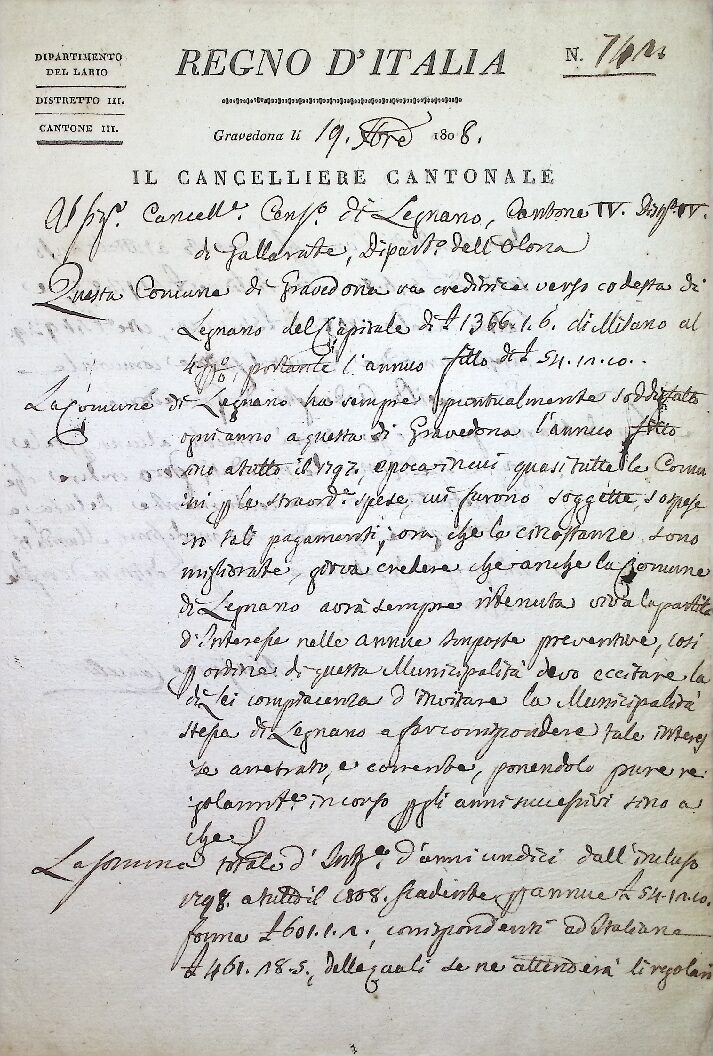 DIPARTIMENTO
DEL LARIO
DISTRETTO III.
CANTONE III.
REGNO D'ITALIA
N.
Gravedona li 19. 1808.
IL CANCELLIERE CANTONALE
Al Sigr. Cancelle. Censo. di Legnano, Cantone IV. IV.
di Gallarate, Diparto. dell'Olona
Questa Comune di Gravedona va creditrice verso codesta di
Legnano del Capitale di £ 1366.1.6. di Milano al
portante l'annuo fitto di £ 54.12.10.
La Comune di Legnano ha sempre puntualmente soddisfatto
ogni anno a questa di Gravedona l'annuo fitto
sino a tutto il 1797, epoca in cui quasi tutte le Comu
ni p le straorde. spese, cui furono soggette, sospese
ro tali pagamenti; ora che le circostanze sono
migliorate, giova credere che anche la Comune
di Legnano avrà sempre ritenuta viva la partita
d'Interesse nelle annue Imposte preventive, così
p ordine di questa Municipalità devo eccitare la
di Lei compiacenza d'invitare la Municipalità
stessa di Legnano a far corrispondere tale interes
se arretrato, e corrente, ponendolo pure re
golarmte. in corso p gli anni successivi sino a
che
La somma totale d' d'anni undici dall'incluso
1798. a tutto il 1808. scadente p annue £ 54.12.10.
forma £ 601.1.2., corrispondenti ad Italiane
£ 461.18.5., delle quali se ne attenderà li regolari